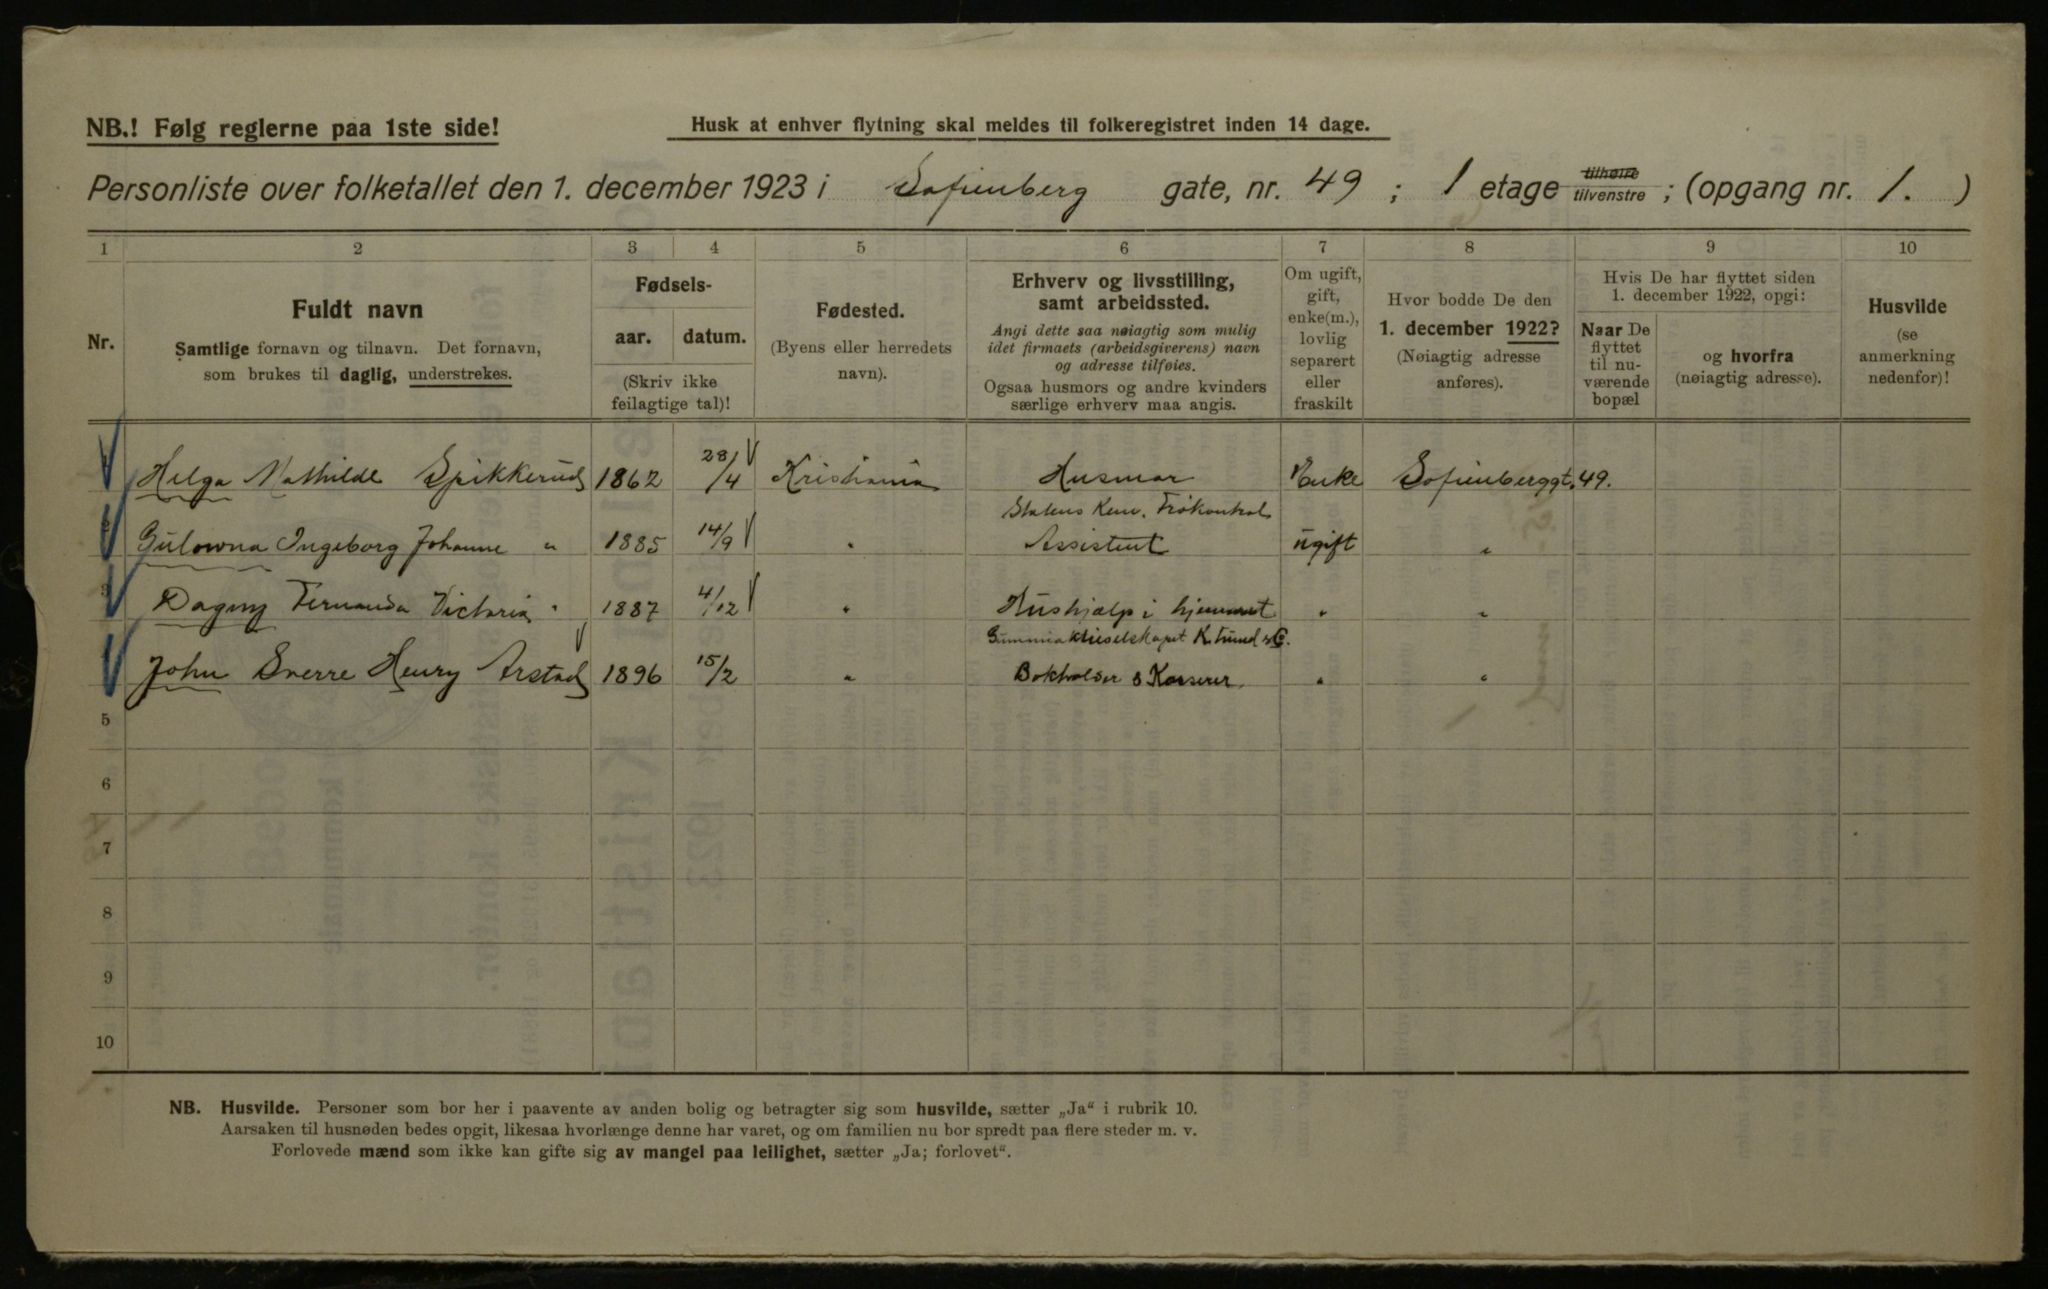 NB.! Følg reglerne paa 1ste side!
Husk at enhver flytning skal meldes til folkeregistret inden 14 dage.
Personliste over folketallet den 1. december 1923 i Sofienberg gate, nr. 49 ; 1 etage tilhøire tilvenstre ; (opgang nr. 1. )
1 2 3 4 5 6 7 8 9 10
Nr.
Fuldt navn
Samtlige fornavn og tilnavn. Det fornavn,
som brukes til daglig, understrekes.
Fødsels-
aar. datum.
(Skriv ikke
feilagtige tal)!
Fødested.
(Byens eller herredets
navn).
Erhverv og livsstilling,
samt arbeidssted.
Angi dette saa nøiagtig som mulig
idet firmaets (arbeidsgiverens) navn
og adresse tilføies.
Ogsaa husmors og andre kvinders
særlige erhverv maa angis.
Om ugift,
gift,
enke(m.),
lovlig
separert
eller
fraskilt
Hvor bodde De den
1. december 1922?
(Nøiagtig adresse
anføres).
Hvis De har flyttet siden
1. december 1922, opgi:
Naar De
flyttet
til nu-
værende
bopæl
og hvorfra
(nøiagtig adresse).
Husvilde
(se
anmerkning
nedenfor)!
Helga Mathilde Spikkerud 1862 28/4 Kristiania Husmor Enke Sofienberggt. 49.
Statens Kem. Frøkontrol
Gulowna Ingeborg Johanne " 1885 14/9 " Assistent ugift "
3 Dagny Fernanda Victoria " 1887 4/12 " Hushjælp i hjemmet " "
Gummiaktieselskapet K. & Co.
John Sverre Henry Arstad 1896 15/2 " Bokholder & Kasserer " "
5
6
7
8
9
10
NB. Husvilde. Personer som bor her i paavente av anden bolig og betragter sig som husvilde, sætter „Ja“ i rubrik 10.
Aarsaken til husnøden bedes opgit, likesaa hvorlænge denne har varet, og om familien nu bor spredt paa flere steder m. v.
Forlovede mænd som ikke kan gifte sig av mangel paa leilighet, sætter „Ja; forlovet“.